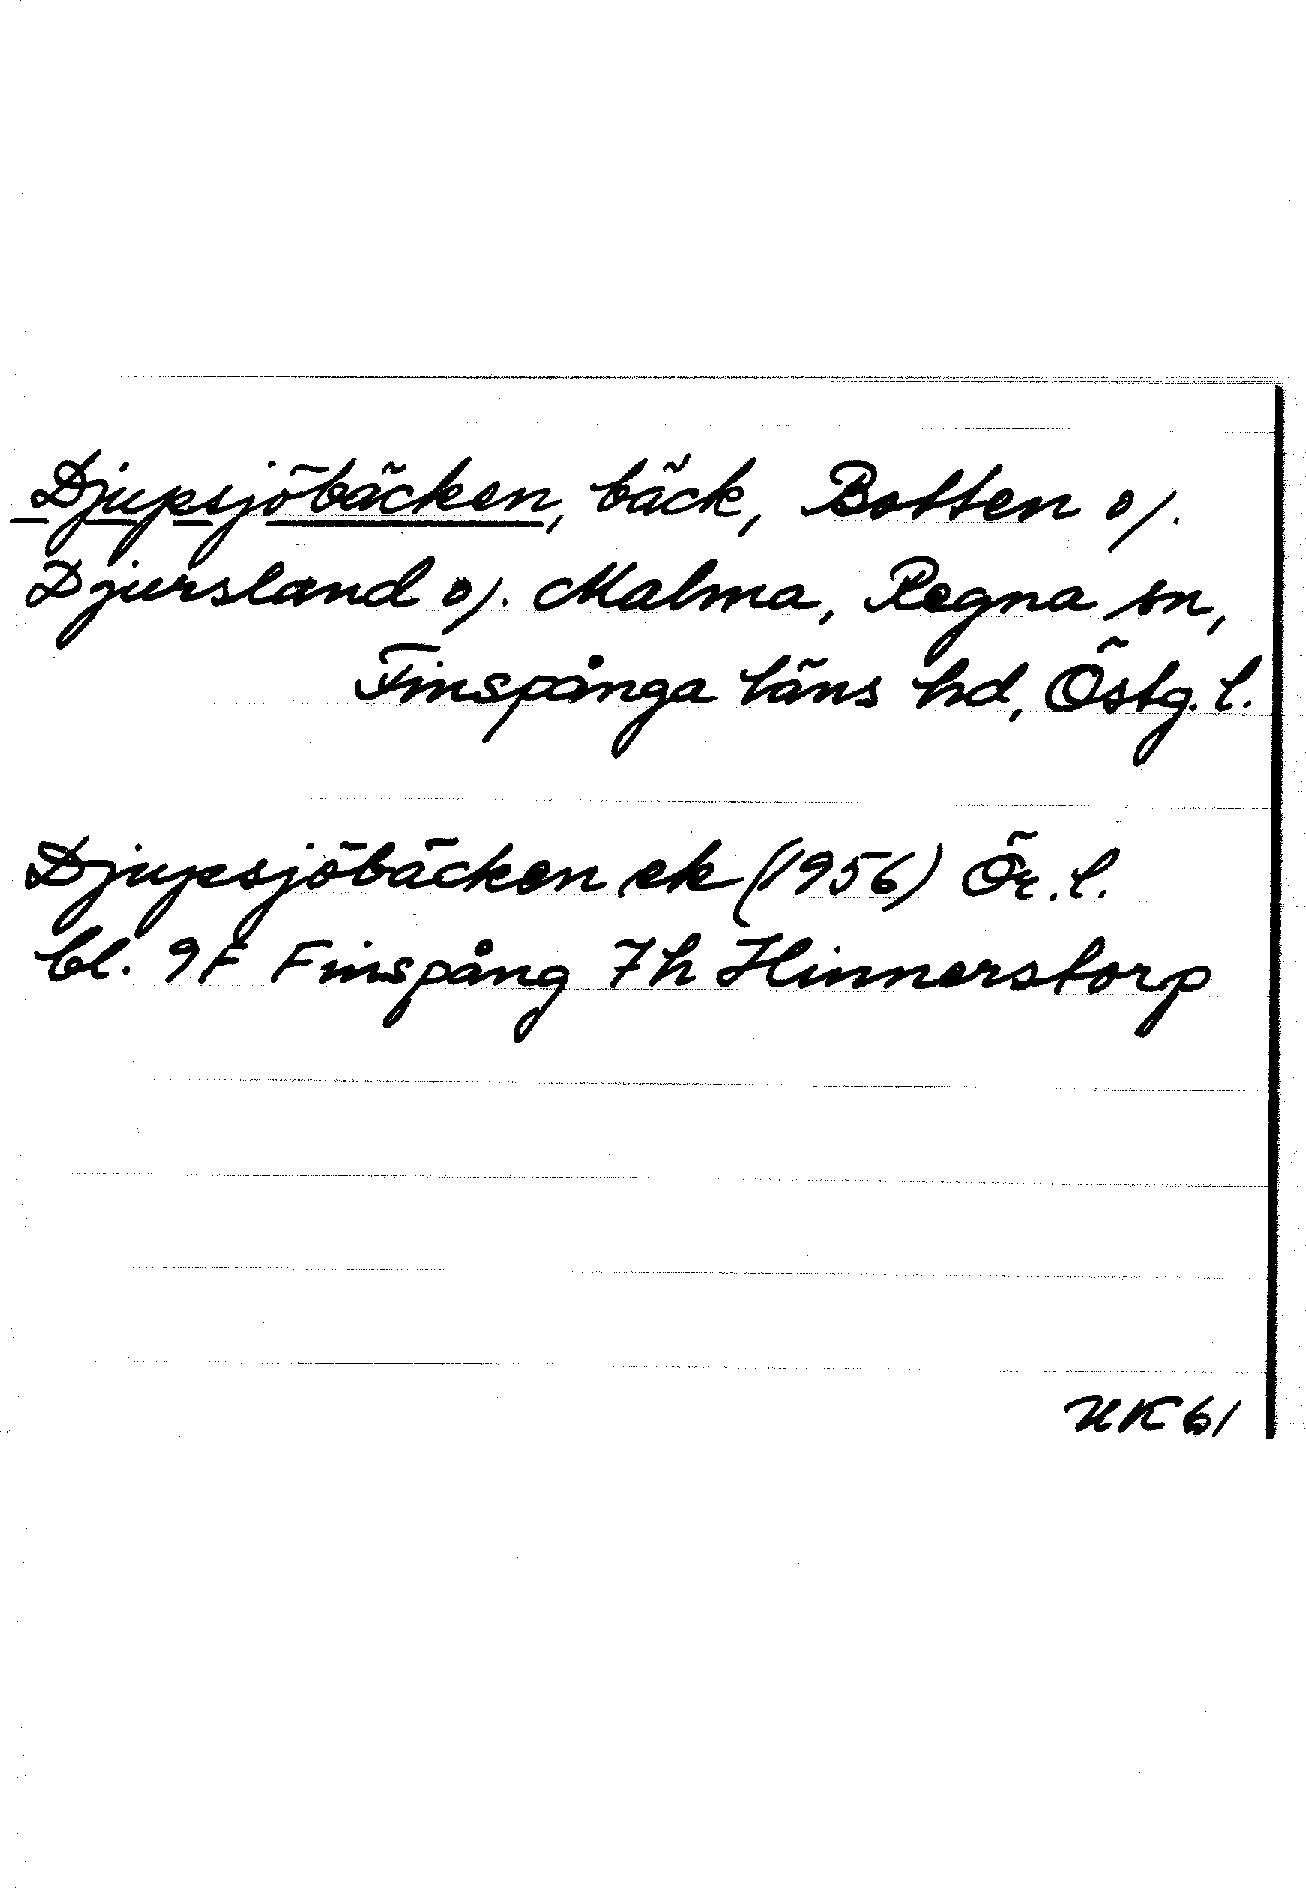 Djupsjöbäcken, bäck, Botten o/.
Djursland o/. Malma, Regna sn,
Finspånga läns hd, Östg. l.
Djupsjöbäcken ek (1956) Ör. l.
bl. 9F Finspång 7h Hinnerstorp
UK 61